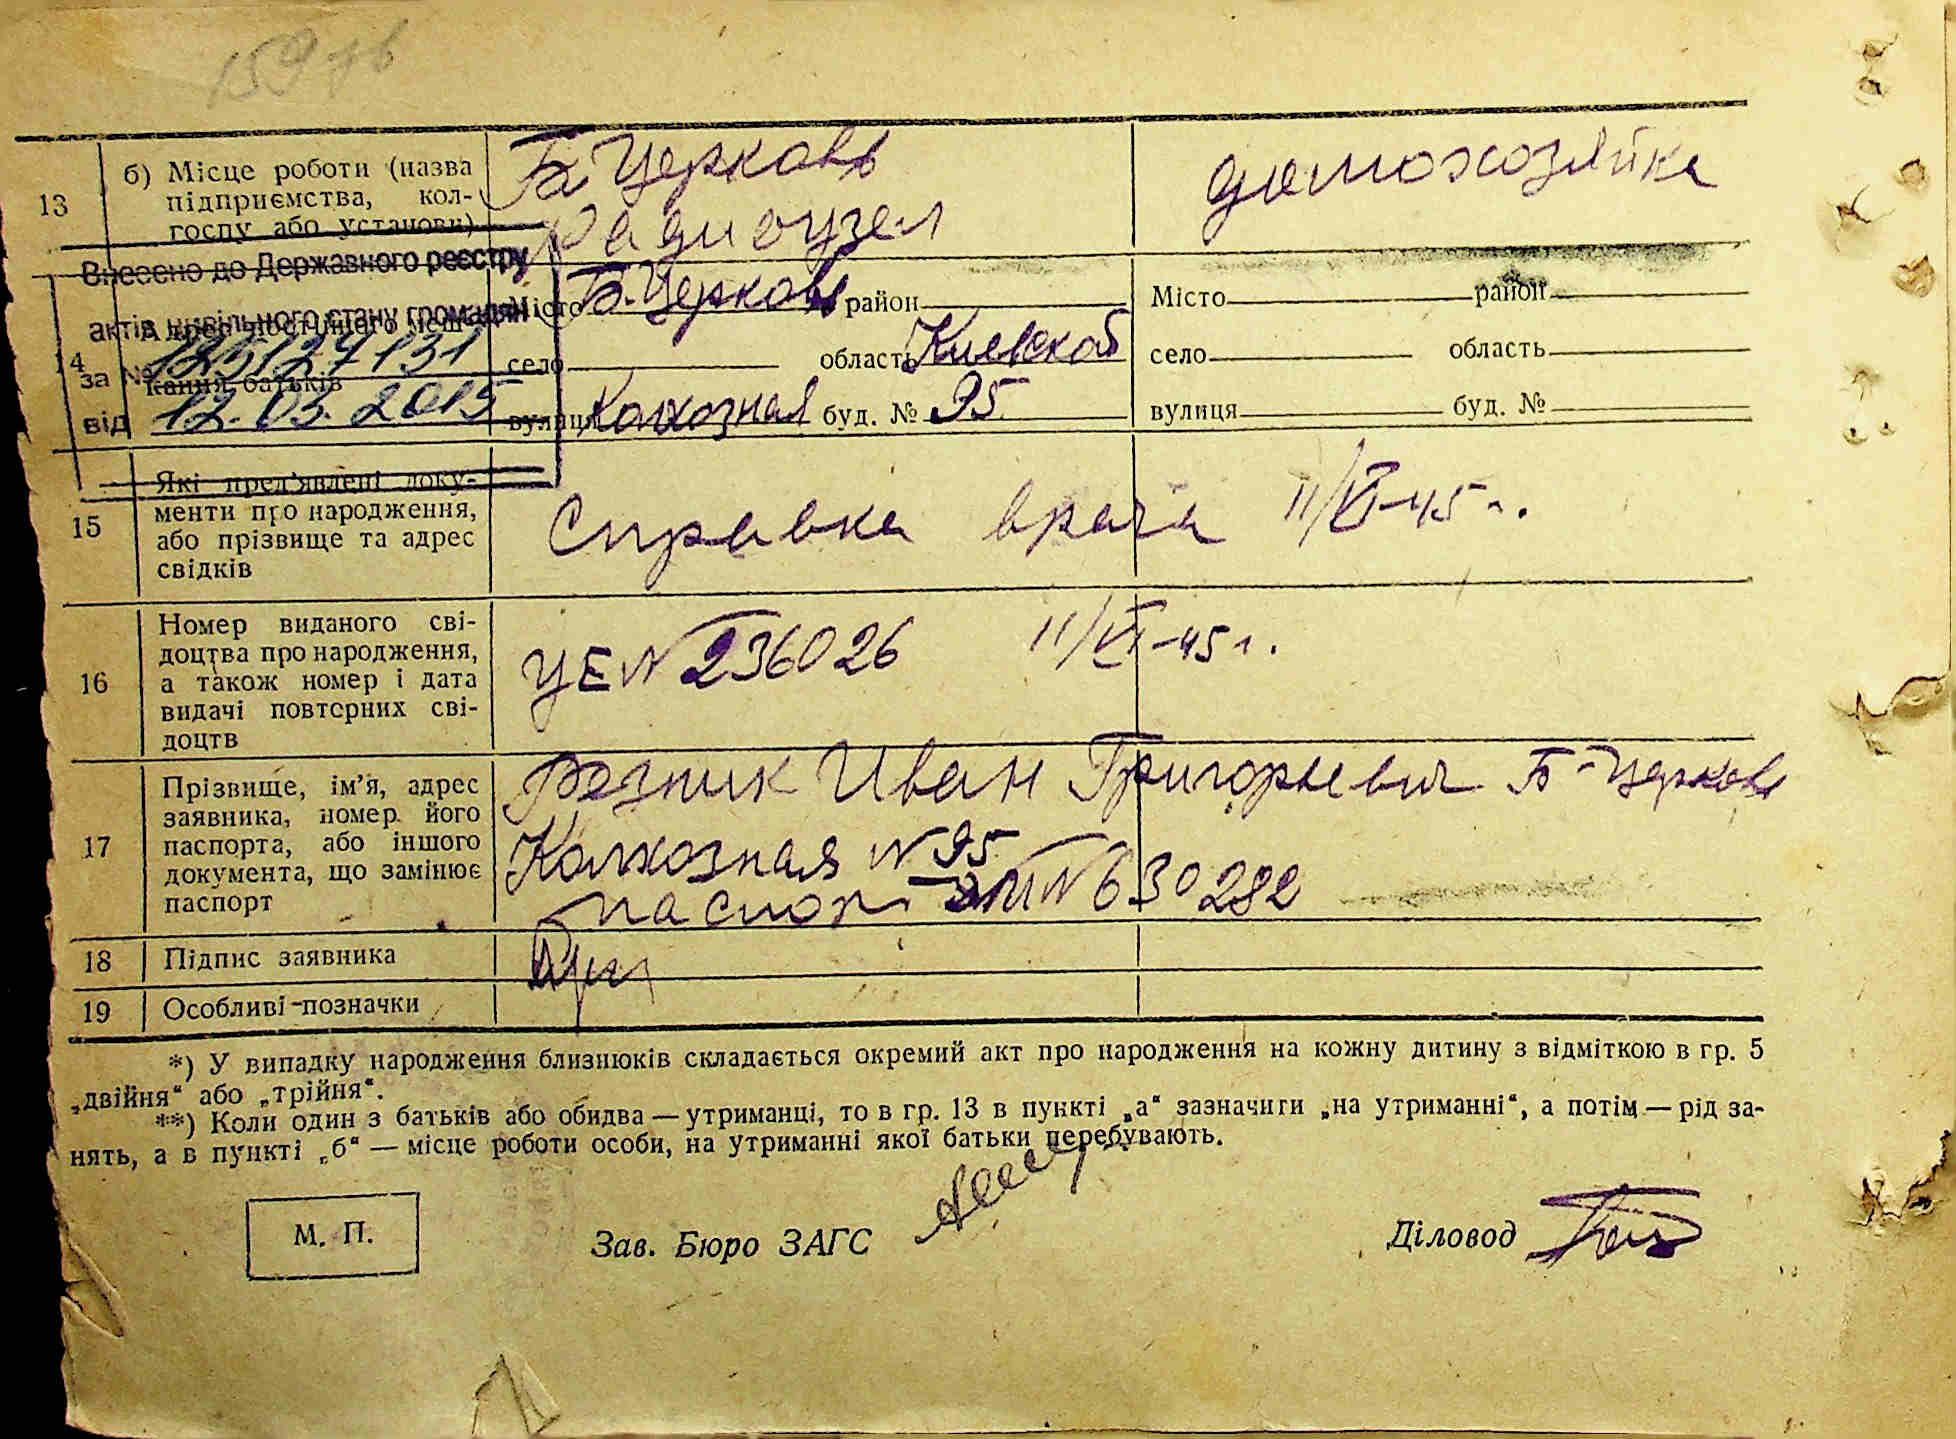 159 тв
13
б) Місце роботи (назва
підприємства, кол-
госпу або установи)
Б Церковь
Радиоузел
домохозяйка
Внесено до Державного реєстру
актів цивільного стану громадян
за № 123127131
від 12.03.2015
14
Адрес постійного меш-
кання батьків
Місто Б.Церковь район
село область Киевской
вулиця Колхозная буд. № 95
Місто район
село область
вулиця буд. №
15
Які пред'явлені доку-
менти про народження,
або прізвище та адрес
свідків
Справка врача 11/VI-45 г.
16
Номер виданого сві-
доцтва про народження,
а також номер і дата
видачі повторних сві-
доцтв
УЕ N 236026 11/VI-45 г.
17
Прізвище, ім'я, адрес
заявника, номер його
паспорта, або іншого
документа, що замінює
паспорт
Резник Иван Григорьевич Б-Церковь
Колхозная N 95
паспорт N 630282
18
Підпис заявника
19
Особливі позначки
*) У випадку народження близнюків складається окремий акт про народження на кожну дитину з відміткою в гр. 5
„двійня“ або „трійня“.
**) Коли один з батьків або обидва — утриманці, то в гр. 13 в пункті „а“ зазначити „на утриманні“, а потім — рід за-
нять, а в пункті „б“ — місце роботи особи, на утриманні якої батьки перебувають.
М. П.
Зав. Бюро ЗАГС
Діловод